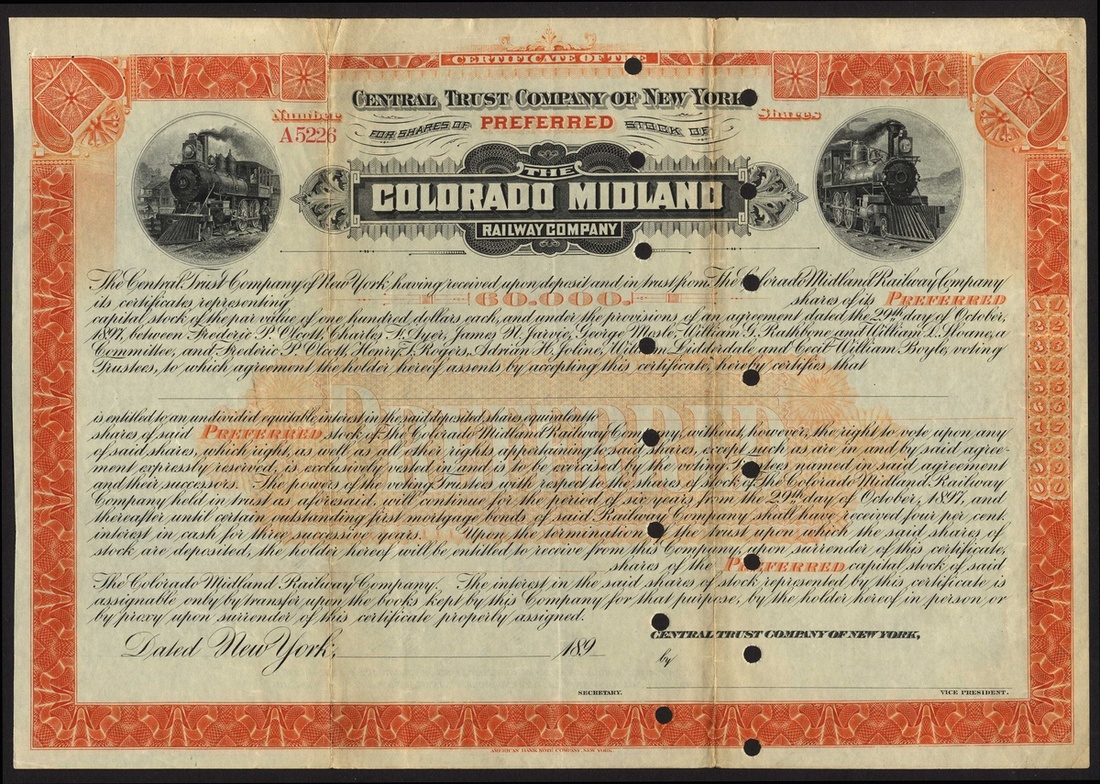 CERTIFICATE OF THE
CENTRAL TRUST COMPANY OF NEW YORK
Number
A5226
FOR SHARES OF PREFERRED STOCK OF
Shares
THE
COLORADO MIDLAND
RAILWAY COMPANY
The Central Trust Company of New York having received upon deposit and in trust from The Colorado Midland Railway Company
its certificates representing 60,000. shares of its PREFERRED
capital stock of the par value of one hundred dollars each, and under the provisions of an agreement dated the 29th day of October,
1897, between Frederic P. Olcott, Charles F. Ayer, James N. Jarvie, George Mosle, William G. Rathbone and William A. Sloane, a
Committee, and Frederic P. Olcott, Henry T. Rogers, Adrian H. Joline, William Lidderdale, and Cecil William Boyle, voting
Trustees, to which agreement the holder hereof assents by accepting this certificate, hereby certifies that
PREFERRED
is entitled to an undividid equitable interest in the said deposited shares equivalent to
shares of said PREFERRED stock of The Colorado Midland Railway Company, without, however, the right to vote upon any
of said shares, which right, as well as all other rights appertaining to said shares, except such as are in and by said agree-
ment expressly reserved, is exclusively vested in and is to be exercised by the voting Trustees named in said agreement
and their successors. The powers of the voting Trustees with respect to the shares of stock of The Colorado Midland Railway
Company held in trust as aforesaid, will continue for the period of six years from the 29th day of October, 1897, and
thereafter until certain outstanding first mortgage bonds of said Railway Company shall have received four per cent.
interest in cash for three successive years. Upon the termination of the trust upon which the said shares of
stock are deposited, the holder hereof will be entitled to receive from this Company, upon surrender of this certificate,
shares of the PREFERRED capital stock of said
The Colorado Midland Railway Company. The interest in the said shares of stock represented by this certificate is
assignable only by transfer upon the books kept by this Company for that purpose, by the holder hereof in person or
by proxy upon surrender of this certificate properly assigned.
CENTRAL TRUST COMPANY OF NEW YORK,
Dated New York, 189
by
SECRETARY.
VICE PRESIDENT.
AMERICAN BANK NOTE COMPANY, NEW YORK.
1 1
2 2
3 3
4 4
5 5
6 6
7 7
8 8
9 9
0 0